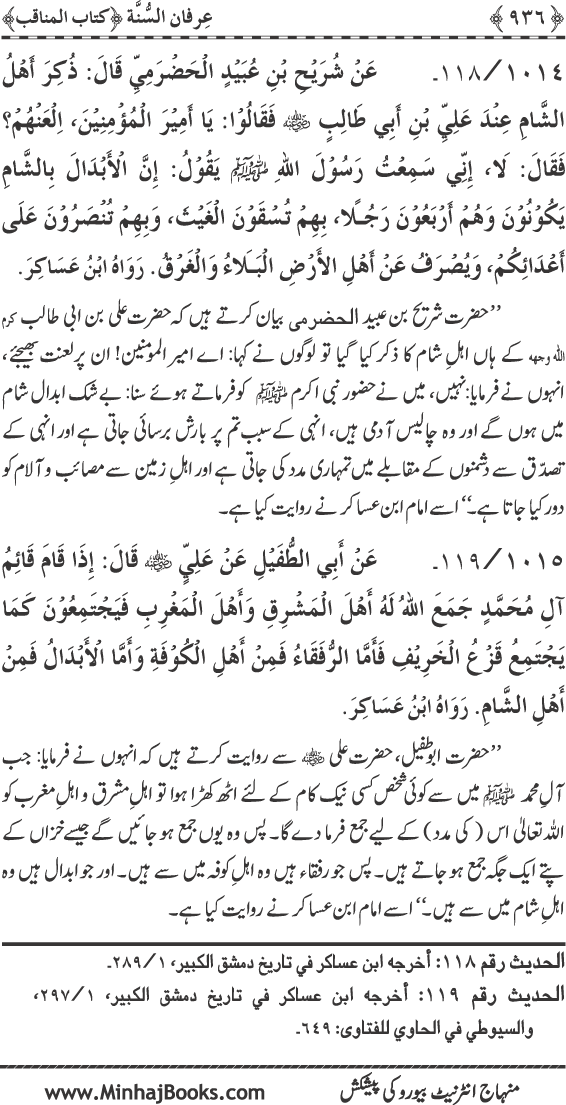 ﴿٩٣٦﴾ عِرفان السُّنَّة ﴿كتاب المناقب﴾
١٠١٤/١١٨۔ عَنْ شُرَيْحِ بْنِ عُبَيْدٍ الْحَضْرَمِيِّ قَالَ: ذُكِرَ أَهْلُ
الشَّامِ عِنْدَ عَلِيِّ بْنِ أَبِي طَالِبٍ ﷜ فَقَالُوْا: يَا أَمِيْرَ الْمُؤْمِنِيْنَ، اِلْعَنْهُمْ؟
فَقَالَ: لَا، إِنِّي سَمِعْتُ رَسُوْلَ اللهِ ﷺ يَقُوْلُ: إِنَّ الْأَبْدَالَ بِالشَّامِ
يَكُوْنُوْنَ وَهُمْ أَرْبَعُوْنَ رَجُـلًا، بِهِمْ تُسْقَوْنَ الْغَيْثَ، وَبِهِمْ تُنْصَرُوْنَ عَلَى
أَعْدَائِكُمْ، وَيُصْرَفُ عَنْ أَهْلِ الْأَرْضِ الْبَلَاءُ وَالْغَرَقُ. رَوَاهُ ابْنُ عَسَاكِرَ.
’’حضرت شریح بن عبید الحضرمی بیان کرتے ہیں کہ حضرت علی بن ابی طالب کرم
اللہ وجہہ کے ہاں اہلِ شام کا ذکر کیا گیا تو لوگوں نے کہا: اے امیر المومنین! ان پر لعنت بھیجئے،
انہوں نے فرمایا: نہیں، میں نے حضور نبی اکرم ﷺ کو فرماتے ہوئے سنا: بے شک ابدال شام
میں ہوں گے اور وہ چالیس آدمی ہیں، انہی کے سبب تم پر بارش برسائی جاتی ہے اور انہی کے
تصدّق سے دشمنوں کے مقابلے میں تمہاری مدد کی جاتی ہے اور اہلِ زمین سے مصائب و آلام کو
دور کیا جاتا ہے۔‘‘ اسے امام ابن عساکر نے روایت کیا ہے۔
١٠١٥/١١٩۔ عَنْ أَبِي الطُّفَيْلِ عَنْ عَلِيٍّ ﷜ قَالَ: إِذَا قَامَ قَائِمُ
آلِ مُحَمَّدٍ جَمَعَ اللهُ لَهُ أَهْلَ الْمَشْرِقِ وَأَهْلَ الْمَغْرِبِ فَيَجْتَمِعُوْنَ كَمَا
يَجْتَمِعُ قَزْعُ الْخَرِيْفِ فَأَمَّا الرُّفَقَاءُ فَمِنْ أَهْلِ الْكُوْفَةِ وَأَمَّا الْأَبْدَالُ فَمِنْ
أَهْلِ الشَّامِ. رَوَاهُ ابْنُ عَسَاكِرَ.
’’حضرت ابوطفیل، حضرت علی ﷜ سے روایت کرتے ہیں کہ انہوں نے فرمایا: جب
آلِ محمد ﷺ میں سے کوئی شخص کسی نیک کام کے لئے اٹھ کھڑا ہوا تو اہلِ مشرق و اہلِ مغرب کو
اللہ تعالیٰ اس (کی مدد) کے لیے جمع فرما دے گا۔ پس وہ یوں جمع ہو جائیں گے جیسے خزاں کے
پتے ایک جگہ جمع ہو جاتے ہیں۔ پس جو رفقاء ہیں وہ اہلِ کوفہ میں سے ہیں۔ اور جو ابدال ہیں وہ
اہلِ شام میں سے ہیں۔‘‘ اسے امام ابن عساکر نے روایت کیا ہے۔
الحديث رقم ١١٨: أخرجه ابن عساكر في تاريخ دمشق الكبير، ١/٢٨٩۔
الحديث رقم ١١٩: أخرجه ابن عساكر في تاريخ دمشق الكبير، ١/٢٩٧،
والسيوطي في الحاوي للفتاوى: ٦٤٩۔
منہاج انٹرنیٹ بیورو کی پیشکش www.MinhajBooks.com